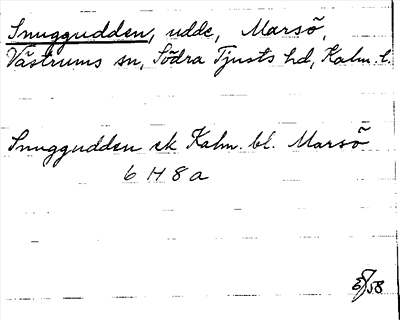 Smuggudden, udde, Marsö,
Västrums sn, Södra Tjusts hd, Kalm. l.
Smuggudden ek Kalm. bl. Marsö
6 H 8 a
/58